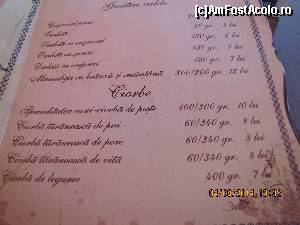 [c] AmFostAcolo.ro
Gustări calde
50 gr. 5 lei
150 gr. 6 lei
Omletă cu cașcaval
180 gr. 7 lei
150 gr. 7 lei
Mămăliga cu brânză și smântână 300/200 gr. 12 lei
Ciorbe
Specialitatea casei-ciorbă de pește 400/200 gr. 10 lei
Ciorbă țărănească de pui 60/340 gr. 8 lei
Ciorbă țărănească de porc 60/340 gr. 8 lei
Ciorbă țărănească de vită 60/340 gr. 8 lei
Ciorbă de legume 400 gr. 7 lei